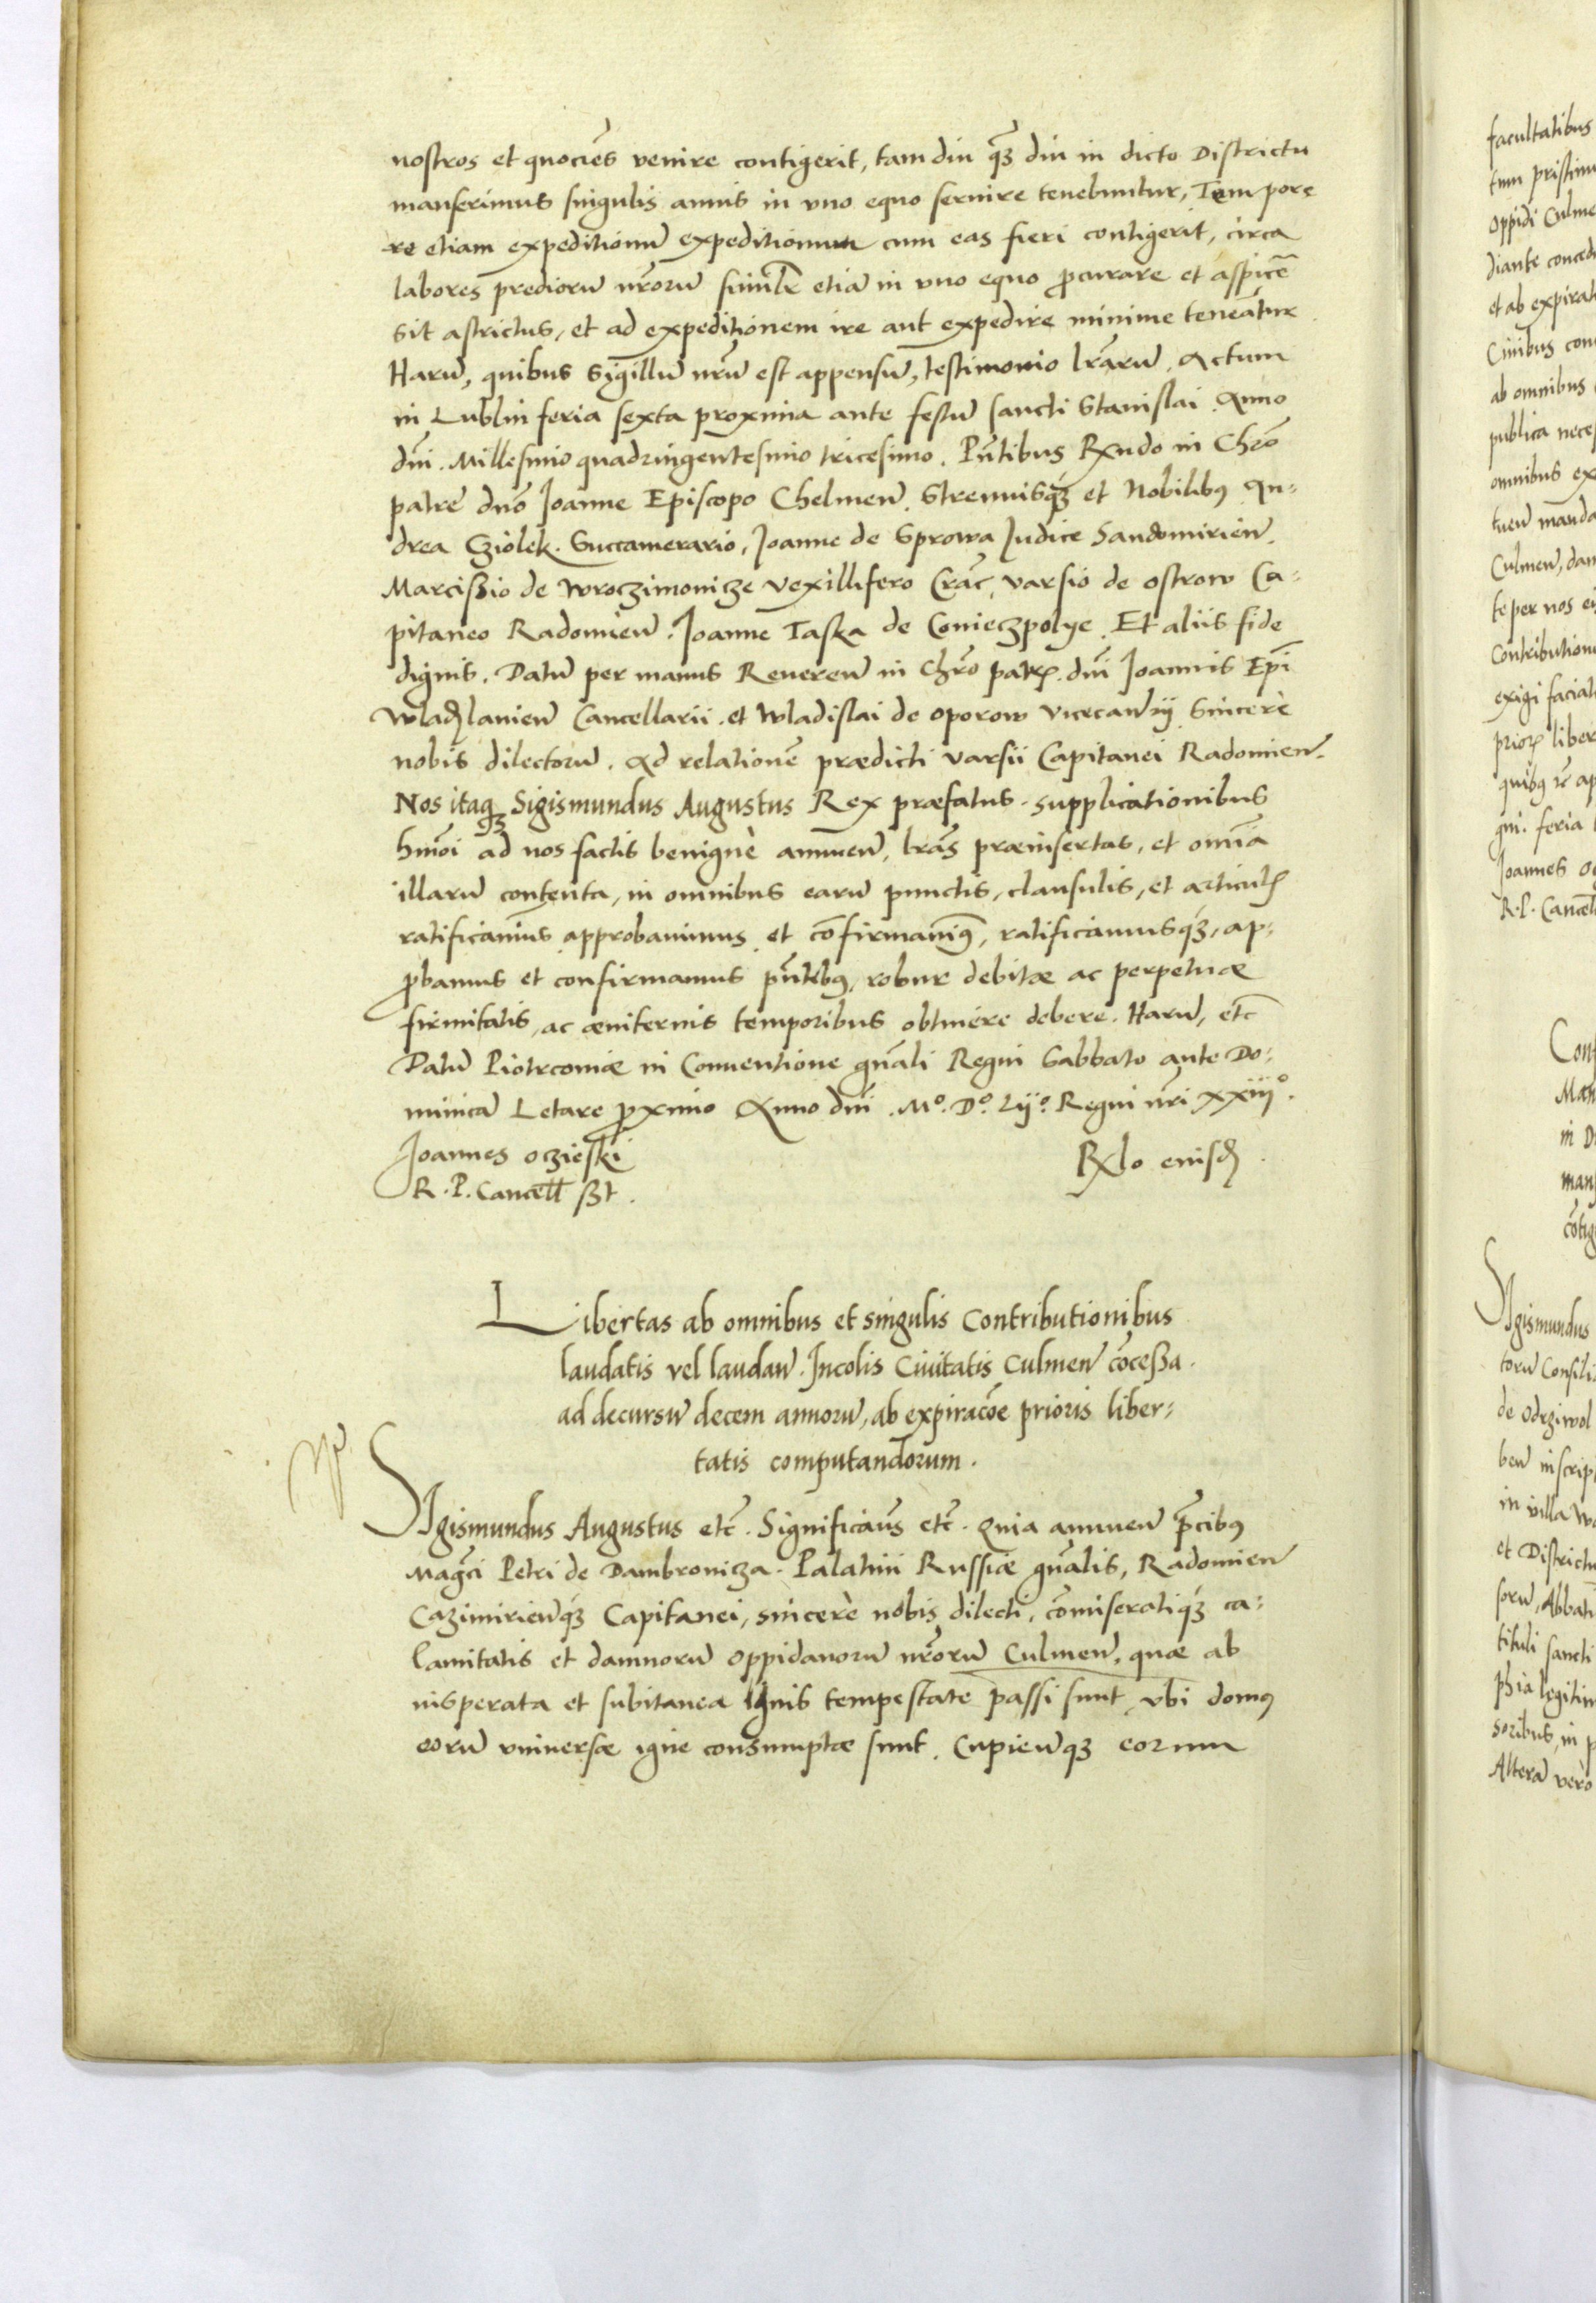 nostros et quocie͂s venire contigerit, tam diu qʒ͂ diu in dicto Districtu
manserimus singulis annis in vno equo seruire tenebuntur, Tempore
re etiam expeditionũ expeditionum cum eas fieri contigerit, circa
labores prediorũ nr̃orũ simil̃r etiã in vno equo ꝓcurare et aspicẽ
sit astrictus, et ad expeditionem ire aut expedire minime teneatur.
Harũ, quibus Sigillũ nr̃ũ est appensũ, testimonio lr̃arũ. Actum
in Lublin feria sexta proxima ante festũ sancti Stanislai Anno
dñi. Millesimo quadringentesimo tricesimo. Pñtibus Rx̃ndo in Chr̃o
patrẽ dñõ Joanne Episcopo Chelmeñ. Strennuisqʒ et Nobilibꝰ An-
drea Cziolek. Succamerario, Joanne de Sprowa Judice Sandomirieñ.
Marcißio de Wroczimonicze Vexillifero Crac̃, varsio de ostrow Ca-
pitaneo Radomieñ. Joanne Taska de Conieczpolye. Et aliis fide
dignis. Datũ per manus Reuereñ in Chr̃o patrꝭ. dñi Joannis Epĩ
Wladꝭlauieñ Cancellarii. et Wladislai de oporow vicecancrij Sincerè
nobis dilectorũ. Ad relationẽ prædicti varsii Capitanei Radomieñ.
Nos itaqʒ Sigismundus Augustus Rex præfatus. supplicationibus
hmõi ad nos factis benignè annueñ, lr̃as præinsertas, et omnia
illarũ contenta, in omnibus earũ punctis, clausulis, et articulꝭ
ratificauimus approbauimus et cõfirmauimꝰ, ratificamusqʒ, ap-
ꝓbamus et confirmamus pñtibꝰ, robur debitæ ac perpetuæ
firmitatis, ac æuiternis temporibus obtinere debere. Harũ, etc̃
Datũ Piotrconiæ in Conuentione gñali Regni Sabbato ante Do-
minicã Letare ꝓximo Anno dñi. Mº. Dº. Lijº. Regni nr̃i xxiijº.
Joannes oczieski
R. P. Cancell̃ ßt.
Rx̃lo eiusdꝭ.
Libertas ab omnibus et singulis Contributionibus
laudatis vel laudañ. Incolis Ciuitatis Culmeñ cõceßa.
ad decursũ decem annorũ, ab expiracõe prioris liber-
tatis computandorum.
Sigismundus Augustus etc̃. Significam̃s etc̃. Quia annueñ p̃cibꝰ
Mag̃ci Petri de Dambrowicza. Palatini Russiæ gñalis, Radomieñ
Cazimirieñqʒ Capitanei, sincerè nobis dilecti, cõmiseratiqʒ ca-
lamitatis et damnorũ oppidanorũ nr̃orũ Culmeñ, quæ ab
insperata et subitanea Ignis tempestate passi sunt, vbi domꝰ
eorũ vniuersæ igne consumptæ sunt. Cupieñqʒ eorum
facultatibus
oppidi Culme
et ab expirat
ab omnibus
publica neces
omnibus ex
Culmeñ, dan
te per nos ei
Contribution
exigi faciat
Joannes O
R. P. Cancel
in D
gismundus
torũ Consili
de Odrziwol
beñ inscrip
in villa Wo
et Districtu
sorũ, Abbati
tituli sancti
phia legitim
soribus, in p
Alterã verò